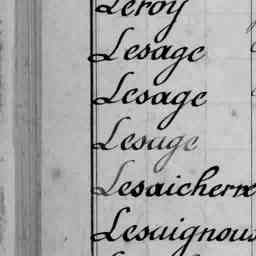 Leroy
Lesage
Lesage
Lesage
Lesaicherre
Lesaignoux